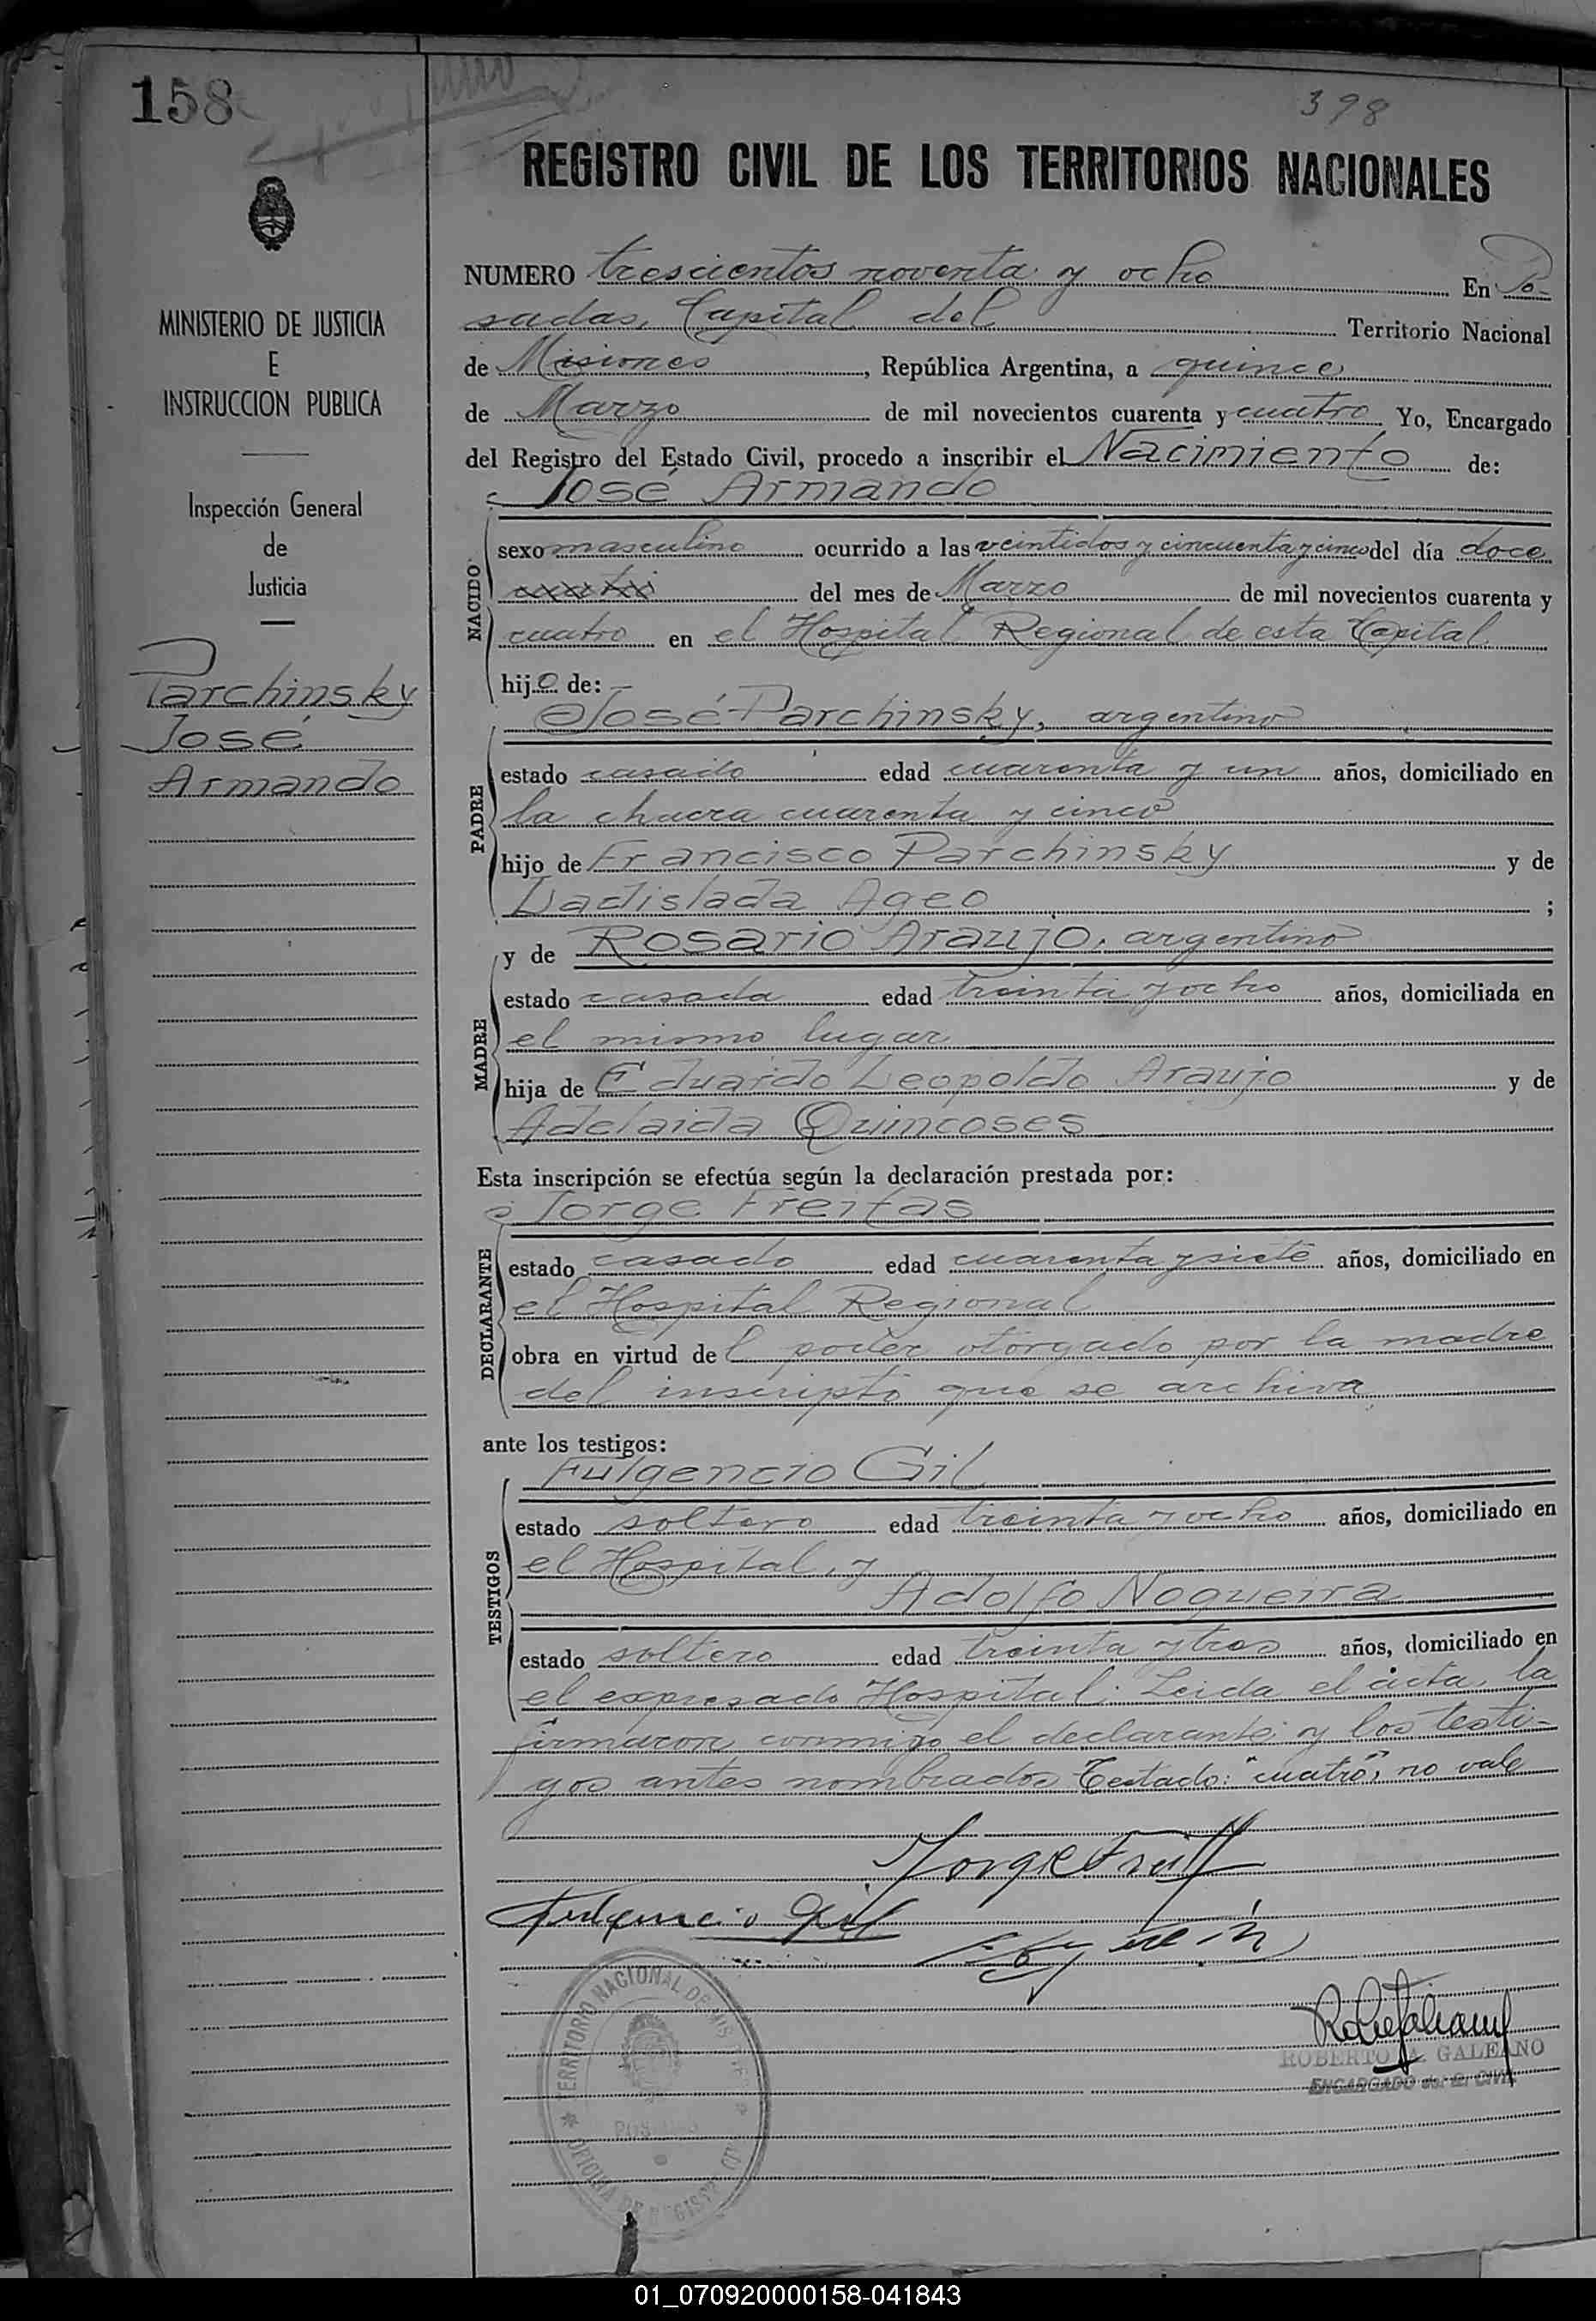 158
398
REGISTRO CIVIL DE LOS TERRITORIOS NACIONALES
MINISTERIO DE JUSTICIA
E
INSTRUCCION PUBLICA
Inspección General
de
Justicia
Parchinsky
José
Armando
NUMERO trescientos noventa y ocho En Po-
sadas, Capital del Territorio Nacional
de Misiones, República Argentina, a quince
de Marzo de mil novecientos cuarenta y cuatro Yo, Encargado
del Registro del Estado Civil, procedo a inscribir el Nacimiento de:
José Armando
NACIDO
sexo masculino ocurrido a las veintidos y cincuenta y cinco del día doce
del mes de Marzo de mil novecientos cuarenta y
cuatro en el Hospital Regional de esta Capital
hijo de:
PADRE
José Parchinsky, argentino
estado casado edad cuarenta y un años, domiciliado en
la chacra cuarenta y cinco
hijo de Francisco Parchinsky y de
Ladislada Ageo ;
MADRE
y de Rosario Araujo, argentino
estado casada edad treinta y ocho años, domiciliada en
el mismo lugar
hija de Eduardo Leopoldo Araujo y de
Adelaida Quincoses
Esta inscripción se efectúa según la declaración prestada por:
DECLARANTE
Jorge Freitas
estado casado edad cuarenta y siete años, domiciliado en
el Hospital Regional
obra en virtud del poder otorgado por la madre
del inscripto que se archiva
ante los testigos:
TESTIGOS
Fulgencio Gil
estado soltero edad treinta y ocho años, domiciliado en
el Hospital, y
Adolfo Nogueira
estado soltero edad treinta y tres años, domiciliado en
el expresado Hospital. Leida el acta, la
firmaron conmigo el declarante y los testi-
gos antes nombrados Testado: "cuatro", no vale
Fulgencio Gil
TERRITORIO NACIONAL DE MISIONES
OFICINA DE REGISTRO
ROBERTO A. GALEANO
ENCARGADO del R. CIVIL
01_070920000158-041843